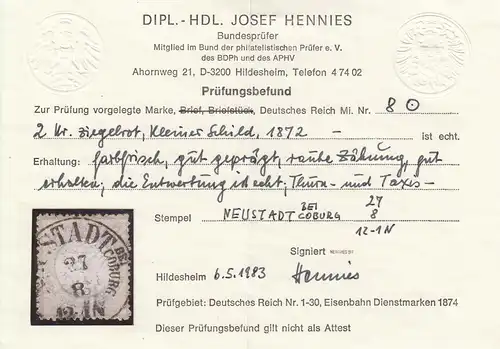 DIPL.-HDL. JOSEF HENNIES
Bundesprüfer
Mitglied im Bund der philatelistischen Prüfer e. V.
des BDPh und des APHV
Ahornweg 21, D-3200 Hildesheim, Telefon 4 74 02
Prüfungsbefund
Zur Prüfung vorgelegte Marke, Brief, Briefstück, Deutsches Reich Mi. Nr. 8 O
2 Kr. ziegelrot, kleiner Schild, 1872 — ist echt.
Erhaltung: farbfrisch, gut geprägt, rauhe Zähnung, gut
erhalten; die Entwertung ist echt, Thurn- und Taxis-
Stempel NEUSTADT BEI COBURG 27/8 12-1N
Signiert HENNIES BPP
Hildesheim 6.5.1983 Hennies
Prüfgebiet: Deutsches Reich Nr. 1-30, Eisenbahn Dienstmarken 1874
Dieser Prüfungsbefund gilt nicht als Attest
STADT BEI COBURG
27
8
12-1N